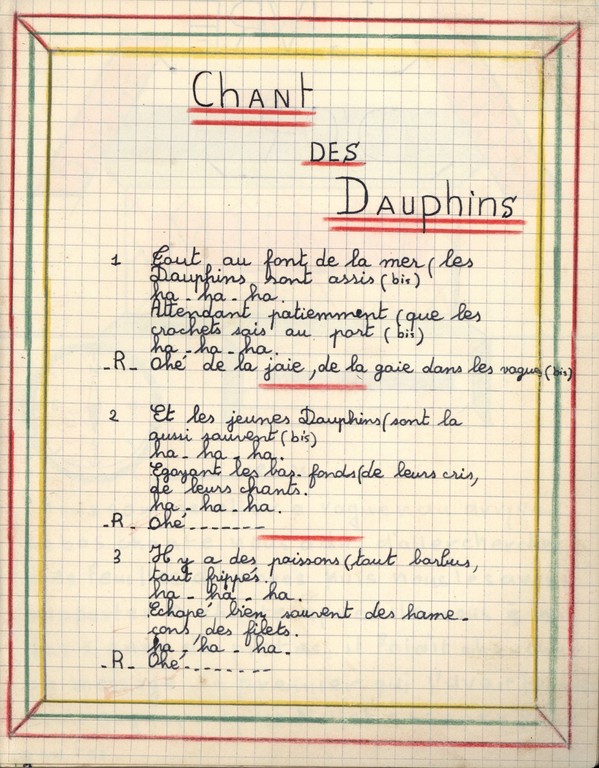 Chant
DES
Dauphins
1 Tout au font de la mer (les
Dauphins sont assis (bis)
ha - ha - ha.
Attendant patiemment (que les
crochets sois au port (bis)
ha - ha - ha.
-R- Ohé de la joie, de la gaie dans les vagues (bis)
2 Et les jeunes Dauphins (sont la
aussi souvent (bis)
ha - ha - ha.
Egayant les bas-fonds (de leurs cris,
de leurs chants.
ha - ha - ha.
-R- Ohé -------
3 Il y a des poissons (tout barbus,
tout frippés.
ha - ha - ha.
Echapé bien souvent des hame-
çons, des filets.
ha - ha - ha -
-R- Ohé --------